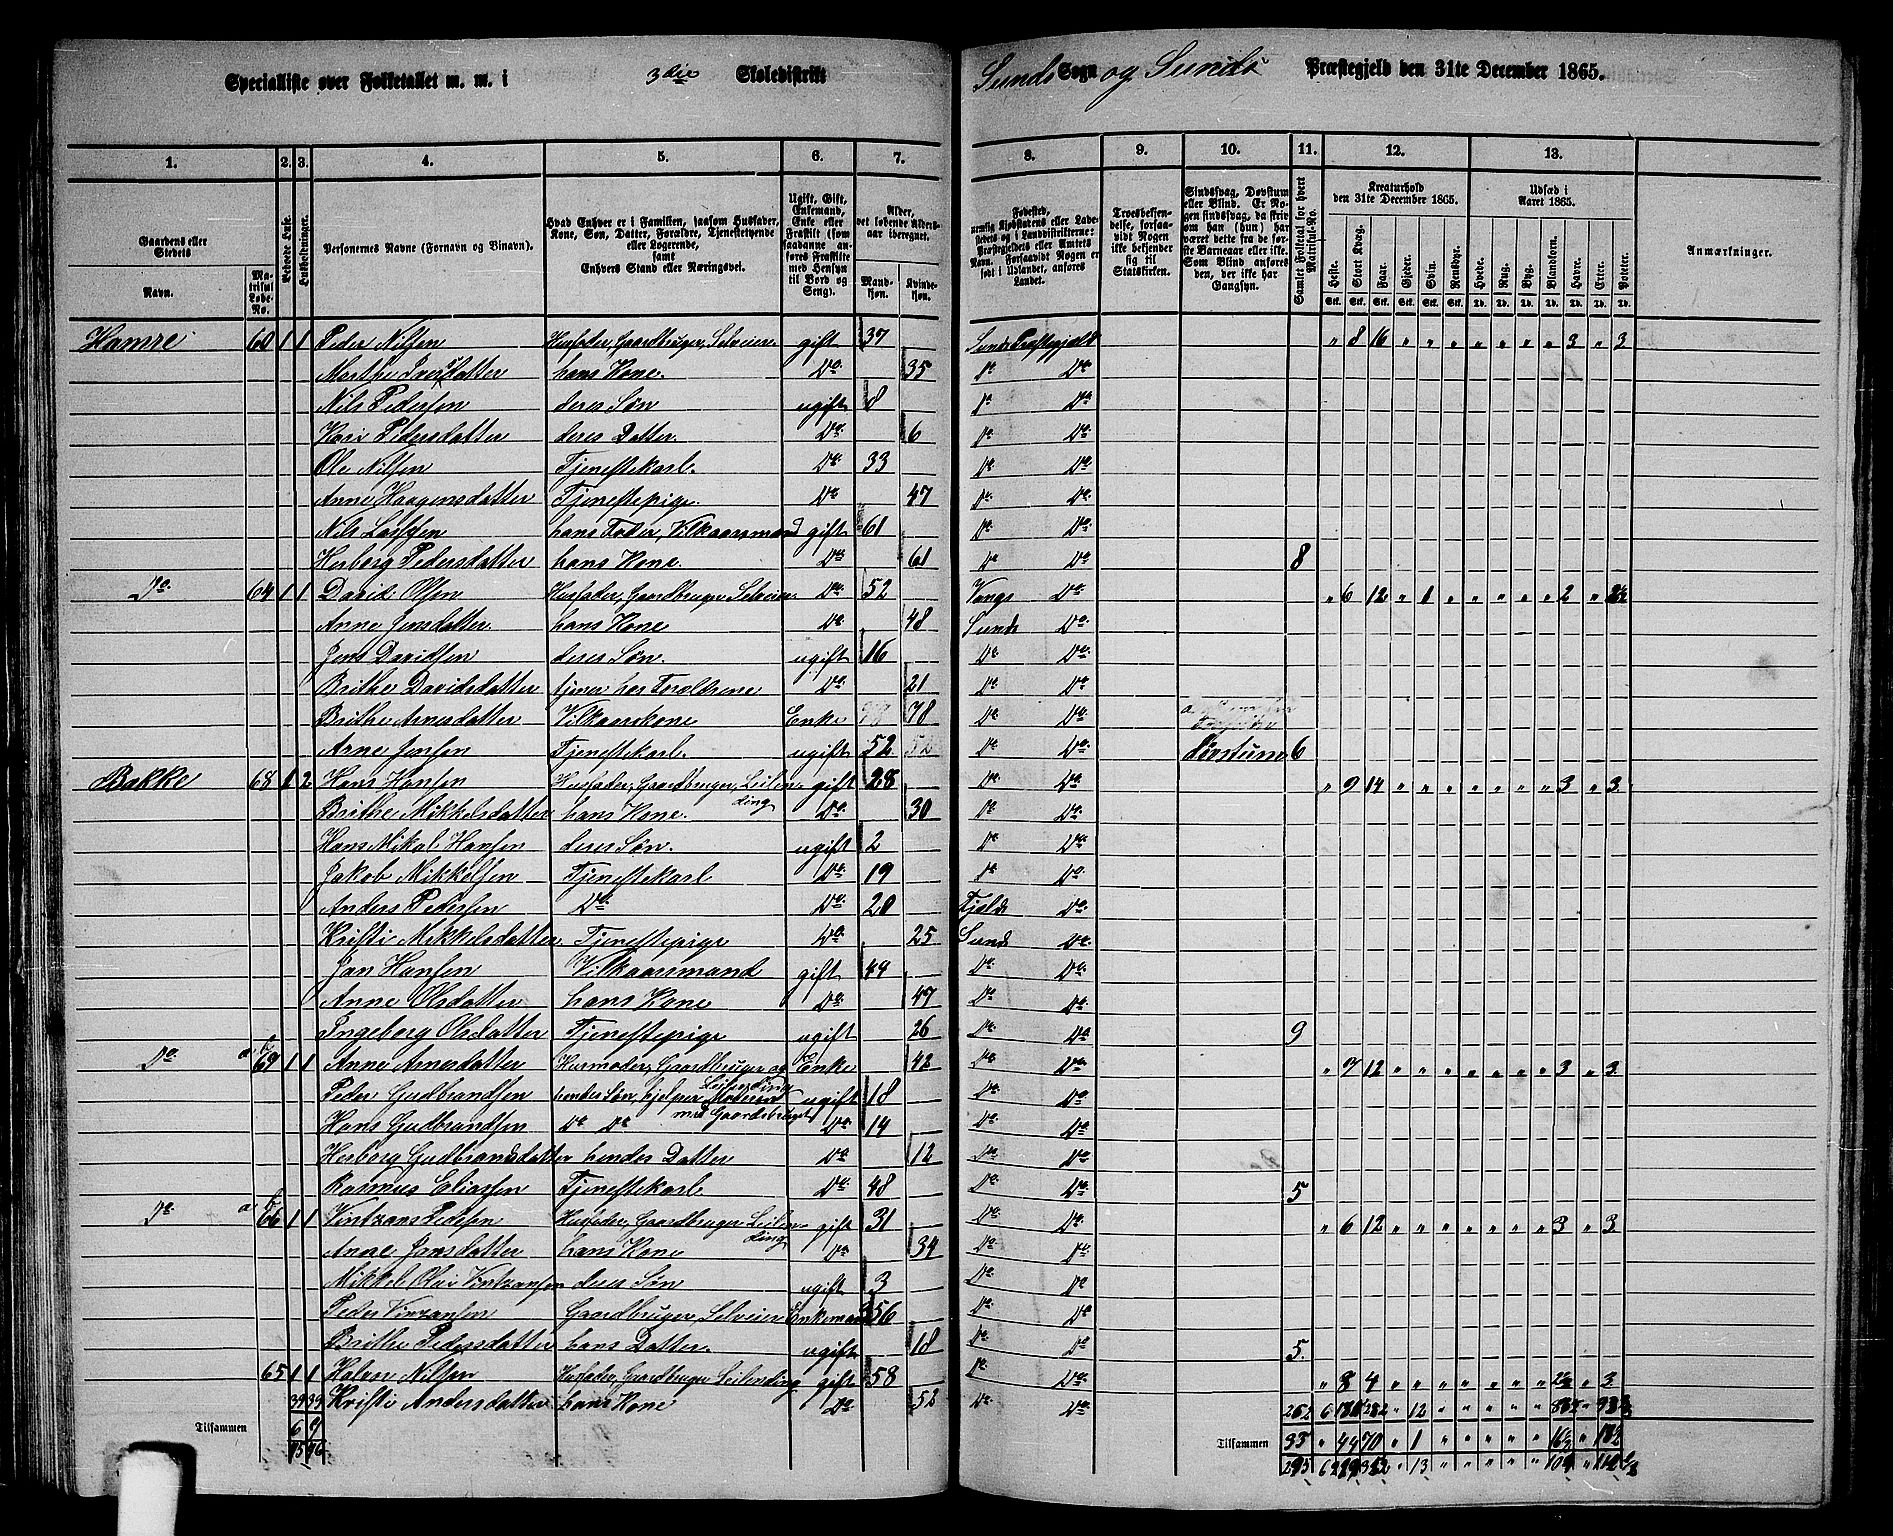 Specialliste over Folketallet m. m. i 3die Skoledistrikt Sunds Sogn og Sunds Præstegjeld den 31te December 1865.
1. 2. 3. 4. 5. 6. 7. 8. 9. 10. 11. 12. 13.
Gaardens eller Stedets Navn. Matrikul Løbe-No. Beboede Huse. Husholdninger.
Personernes Navne (Fornavn og Binavn).
Hvad Enhver er i Familien, saasom Husfader, Kone, Søn, Datter, Forældre, Tjenestetyende eller Logerende, samt Enhvers Stand eller Næringsvei.
Ugift, Gift, Enkemand, Enke eller Fraskilt (som saadanne anføres Fraskilte med Hensyn til Bord og Seng).
Alder, det løbende Aldersaar iberegnet. Mandkjøn. Kvindekjøn.
Fødested, nemlig Kjøbstadens eller Ladestedets og i Landdistrikterne: Præstegjeldets eller Amtets Navn. Forsaavidt Nogen er født i Udlandet, anføres Landet.
Troesbekjendelse, forsaavidt Nogen ikke bekjender sig til Statskirken.
Sindssvag, Døvstum eller Blind. Er Nogen sindssvag, da skriv om han (hun) har været dette fra de første Barneaar eller ikke. Som Blind anføres den, der ikke har Gangsyn.
Samlet Folketal for hvert Matrikul-No.
Kreaturhold den 31te December 1865. Heste. Stort Kvæg. Faar. Gjeder. Svin. Rensdyr.
Udsæd i Aaret 1865. Hvede. Rug. Byg. Blandkorn. Havre. Erter. Poteter.
Anmærkninger.
Stk. Stk. Stk. Stk. Stk. Stk. Td. Td. Td. Td. Td. Td. Td.
Hamre 60 1 1 Peder Nilsen Husfader, Gaardbruger, Selveier gift 37 Sunds Præstegjeld " 8 16 " " " " " " " 3 " 3
Marthe Iversdatter hans Kone. Do. 35 Do Do.
Nils Pedersen deres Søn ugift 8 Do Do
Kari Pedersdatter deres Datter. Do. 6 Do. Do.
Ole Nilsen Tjenestekarl. Do. 33 Do. Do.
Anne Haagensdatter Tjenestepige. Do. 47 Do. Do.
Nils Larssen hans Fader, Vilkaarsmand gift 61 Do. Do.
Herborg Pedersdatter hans Kone. Do. 61 Do Do. 8
Do. 64 1 1 David Olsen Husfader, Gaardbruger Selveier Do. 52 Vangs Do. " 6 12 " 1 " " " " " 2 "
Anne Jensdatter hans Kone Do. 48 Sunds Do.
Jens Davidsen deres Søn. ugift 16 Do. Do.
Brithe Davidsdatter tjener hos Forældrene Do. 21 Do. Do.
Brithe Arnesdatter Vilkaarskone Enke 78 Do. Do.
Arne Jensen Tjenestekarl. ugift 52 52 Do. Do. døvstum 6
Bakke 68 1 2 Hans Hansen Husfader, Gaardbruger, Leilending gift 28 Do. Do. " 9 14 " " " " " " " 3 " 3
Brithe Mikkelsdatter hans Kone. Do. 30 Do. Do.
Hans Mikal Hansen deres Søn. ugift 2 Do. Do.
Jakob Mikkelsen Tjenestekarl Do. 19 Do. Do.
Anders Pedersen Do. Do. 20 Fjelds Do.
Kristi Mikkelsdatter Tjenestepige Do. 25 Sunds Do.
Jan Hansen Vilkaarsmand gift 49 Do. Do.
Anne Olsdatter hans Kone Do. 47 Do Do.
Ingeborg Olsdatter Tjenestepige ugift 26 Do. Do 9
Do. 69 1 1 Anne Arnesdatter Husmoder, Gaardbruger og Leilending Enke 42 Do. Do. " 7 12 " " " " " " " 3 " 3
Peder Gudbrandsen hendes Søn, hjelper Moderen med Gaardsbruget ugift 18 Do. Do.
Hans Gudbrandsen Do Do Do. 14 Do. Do.
Herborg Gudbrandsdatter hendes Datter Do. 12 Do. Do.
Rasmus Eliassen Tjenestekarl Do. 48 Do. Do. 5
Do. 66 1 1 Vintzans Pedersen Husfader, Gaardbruger Leilending gift 31 Do. Do. " 6 12 " " " " " " " 3 " 3
Anne Jansdatter hans Kone Do. 34 Do. Do.
Mikkel Olai Vintzansen deres Søn ugift 3 Do. Do
Peder Vinzansen Gaardbruger, Selveier Enkemand 56 Do. Do
Brithe Pedersdatter hans Datter. ugift 18 Do. Do 5.
65 1 1 Halvor Nilsen Husfader, Gaardbruger Leilending gift 58 Do. Do. " 8 4 " " " " " " " " 3
39 39 Kristi Andersdatter hans Kone Do 52 Do. Do. 262 6 " 12 " " " " " "
Tilsammen 6 9 Tilsammen 33 " 44 70 " 1 " " " " " "
295 6 " 13 " " " " " "